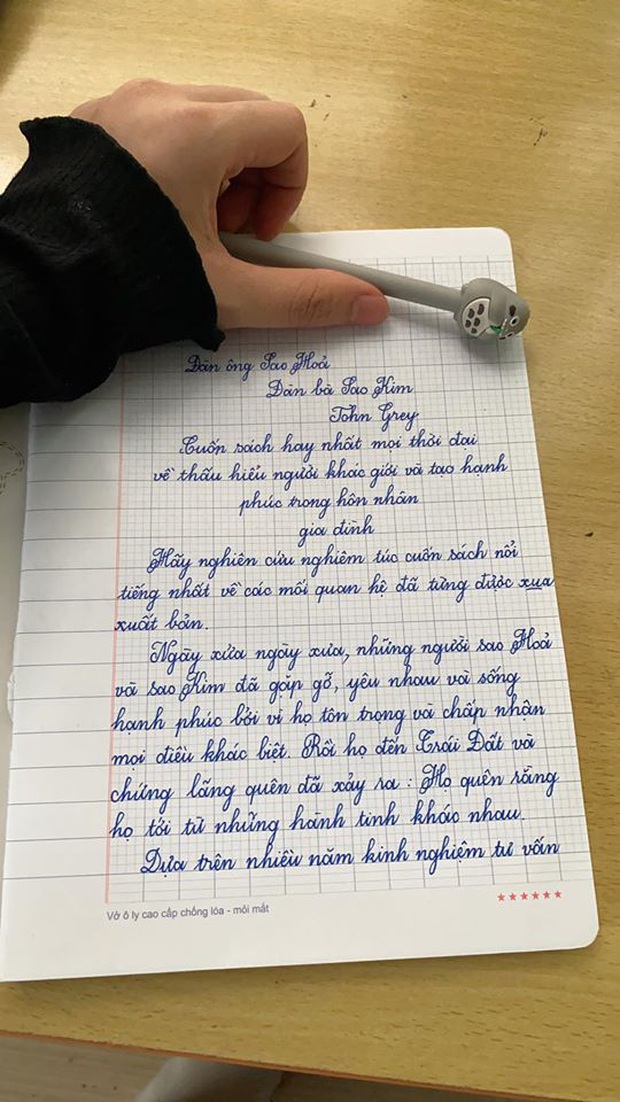 Đàn ông Sao Hoả
Đàn bà Sao Kim
John Grey
Cuốn sách hay nhất mọi thời đại
về thấu hiểu người khác giới và tạo hạnh
phúc trong hôn nhân
gia đình
Hãy nghiên cứu nghiêm túc cuốn sách nổi
tiếng nhất về các mối quan hệ đã từng được xua
xuất bản.
Ngày xửa ngày xưa, những người sao Hoả
và sao Kim đã gặp gỡ, yêu nhau và sống
hạnh phúc bởi vì họ tôn trọng và chấp nhận
mọi điều khác biệt. Rồi họ đến Trái Đất và
chứng lãng quên đã xảy ra : Họ quên rằng
họ tới từ những hành tinh khác nhau.
Dựa trên nhiều năm kinh nghiệm tư vấn
Vở ô ly cao cấp chống lóa - mỏi mắt